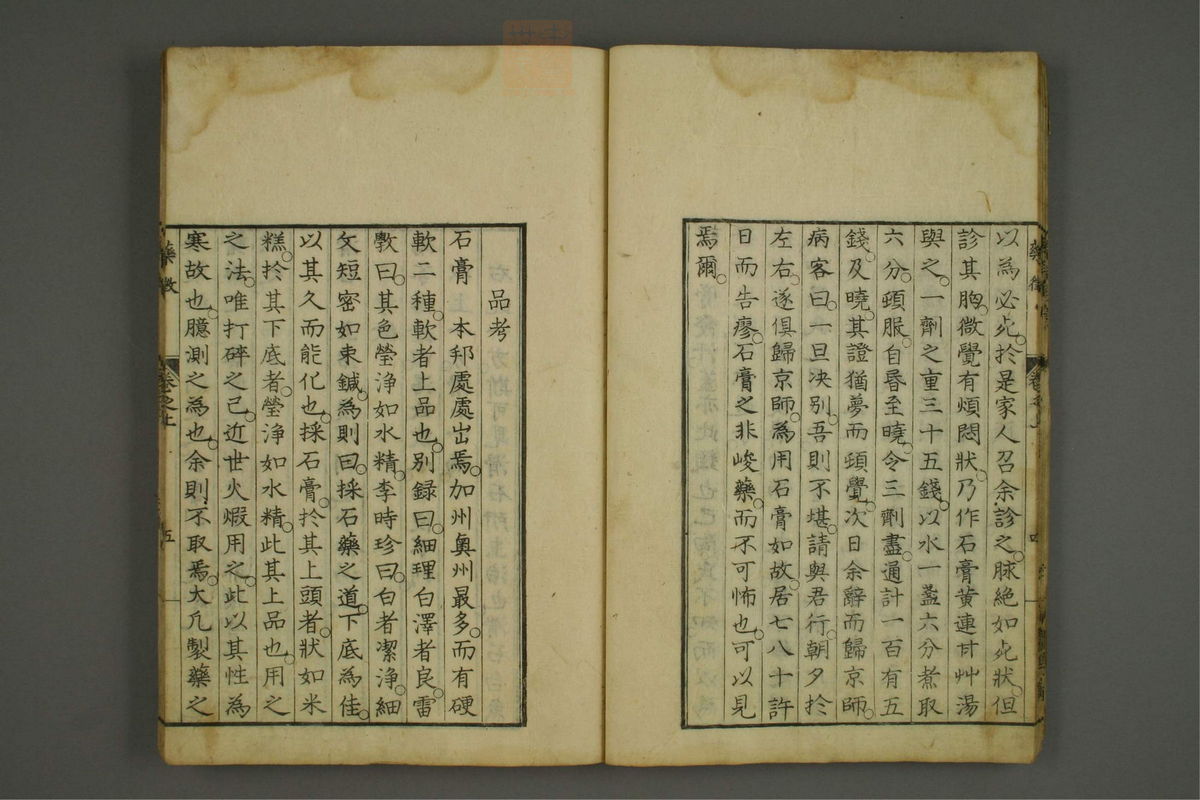 以為必死。於是家人召余診之。脉絶如死狀。但
診其胸。微覺有煩悶狀。乃作石膏黄連甘艸湯
與之。一劑之重三十五錢。以水一盞六分煮取
六分。頓服。自昏至曉。令三劑盡。通計一百有五
錢。及曉。其證猶夢而頓覺。次日余辭而歸京師。
病客曰。一旦决别。吾則不堪。請與君行。朝夕於
左右。遂俱歸京師。為用石膏如故。居七八十許
日而告瘳。石膏之非峻藥。而不可怖也。可以見
焉爾。
藥徵
卷之上
五
品考
石膏 本邦處處出焉。加州奥州最多。而有硬
軟二種。軟者上品也。别録曰。細理白澤者良。雷
斆曰。其色瑩浄如水精。李時珍曰。白者潔浄。細
文短密如束鍼。為則曰。採石藥之道。下底為佳。
以其久而能化也。採石膏。於其上頭者。狀如米
糕。於其下底者。瑩浄如水精。此其上品也。用之
之法。唯打碎之已。近世火煆用之。此以其性為
寒故也。臆測之為也。余則不取焉。大凡製藥之